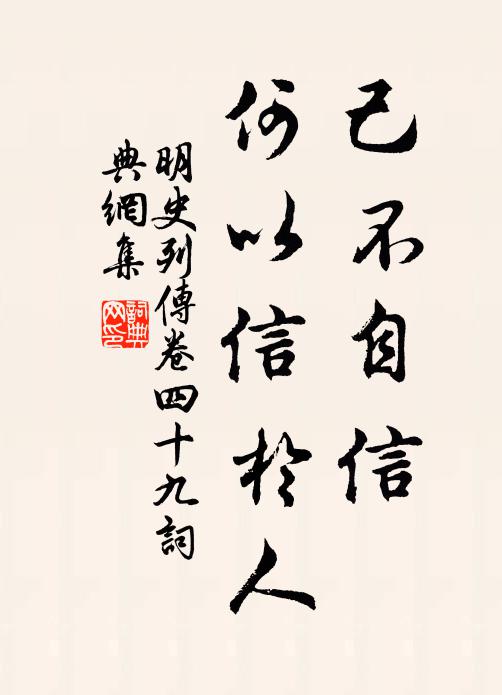 己不自信
何以信於人
明史列傳卷四十九詞
典網集
詞典
网印